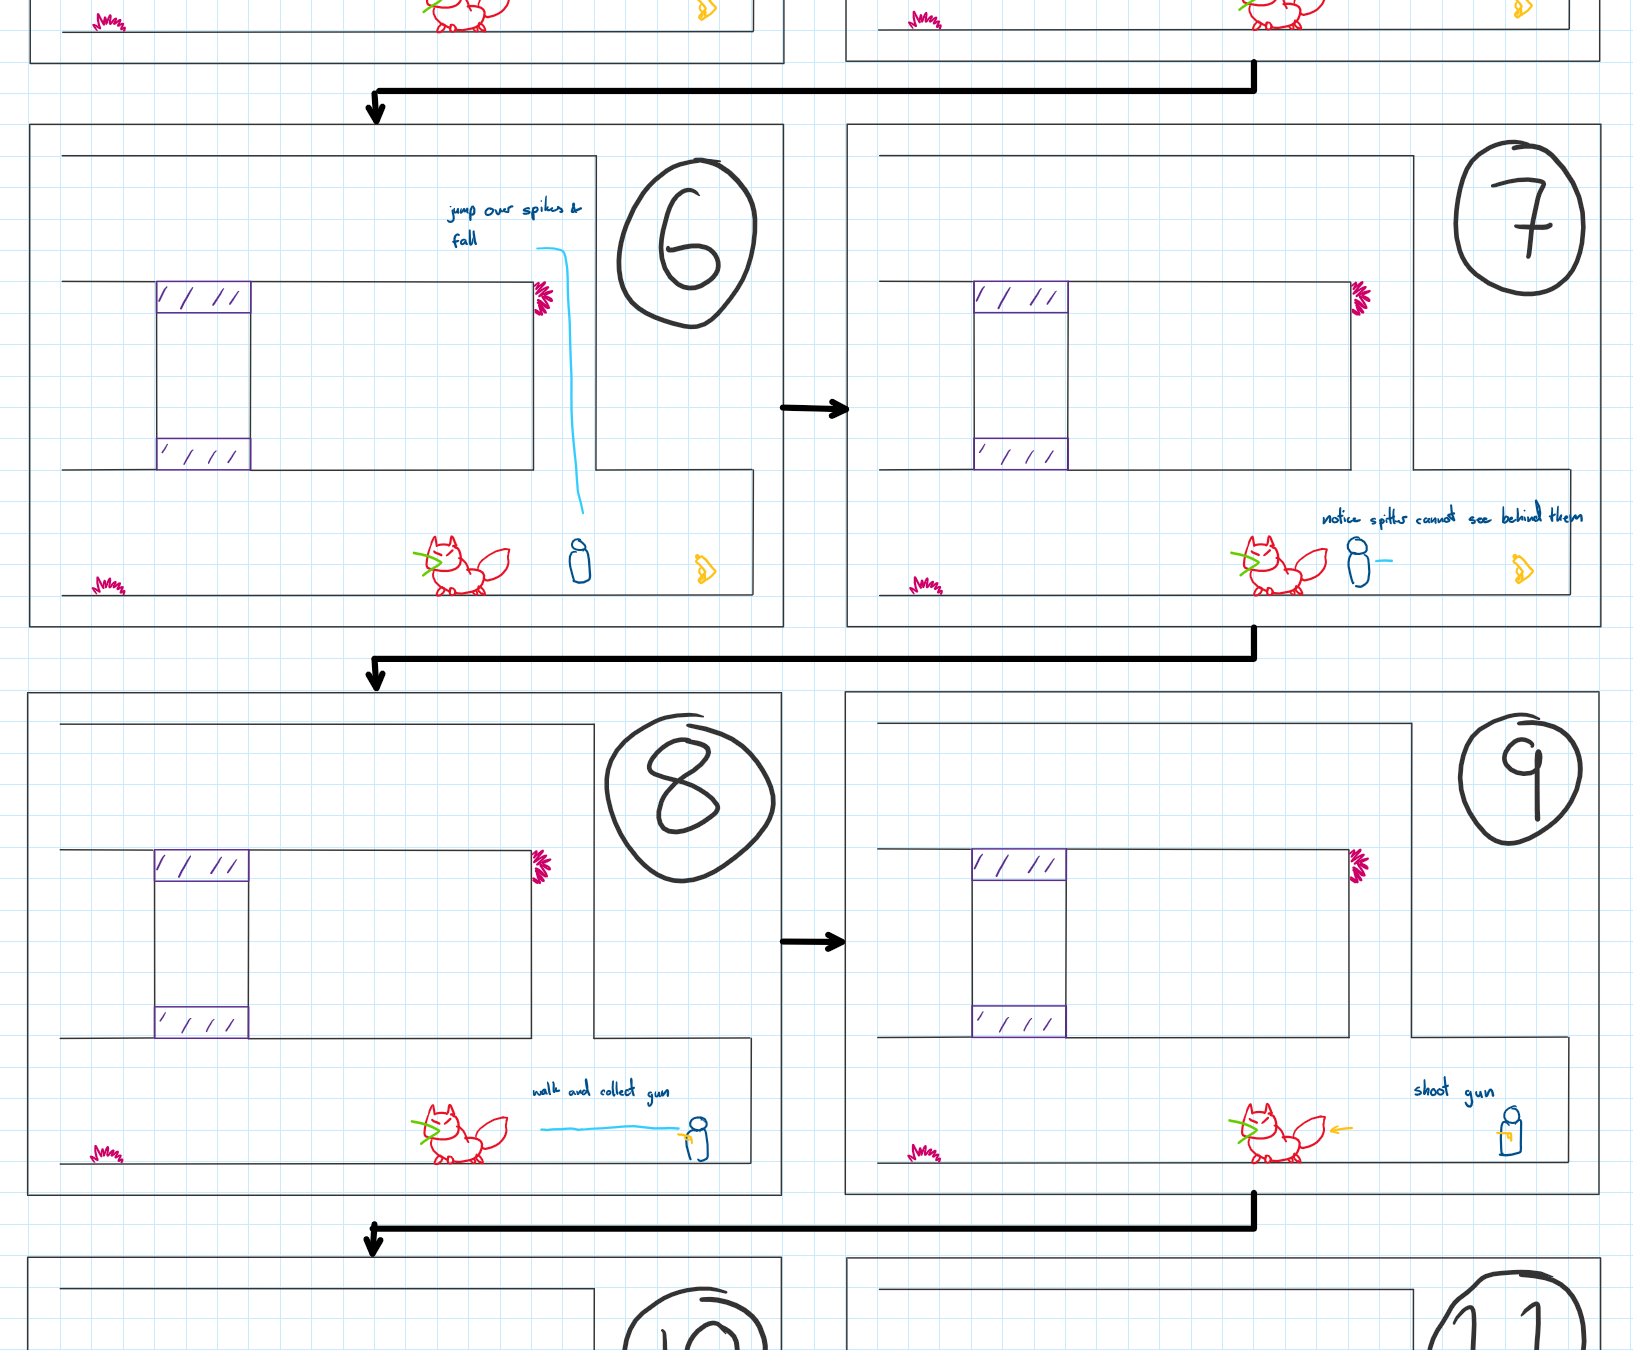 6
jump over spikes &
fall
7
notice spitter cannot see behind them
8
walk and collect gun
9
shoot gun
10
11